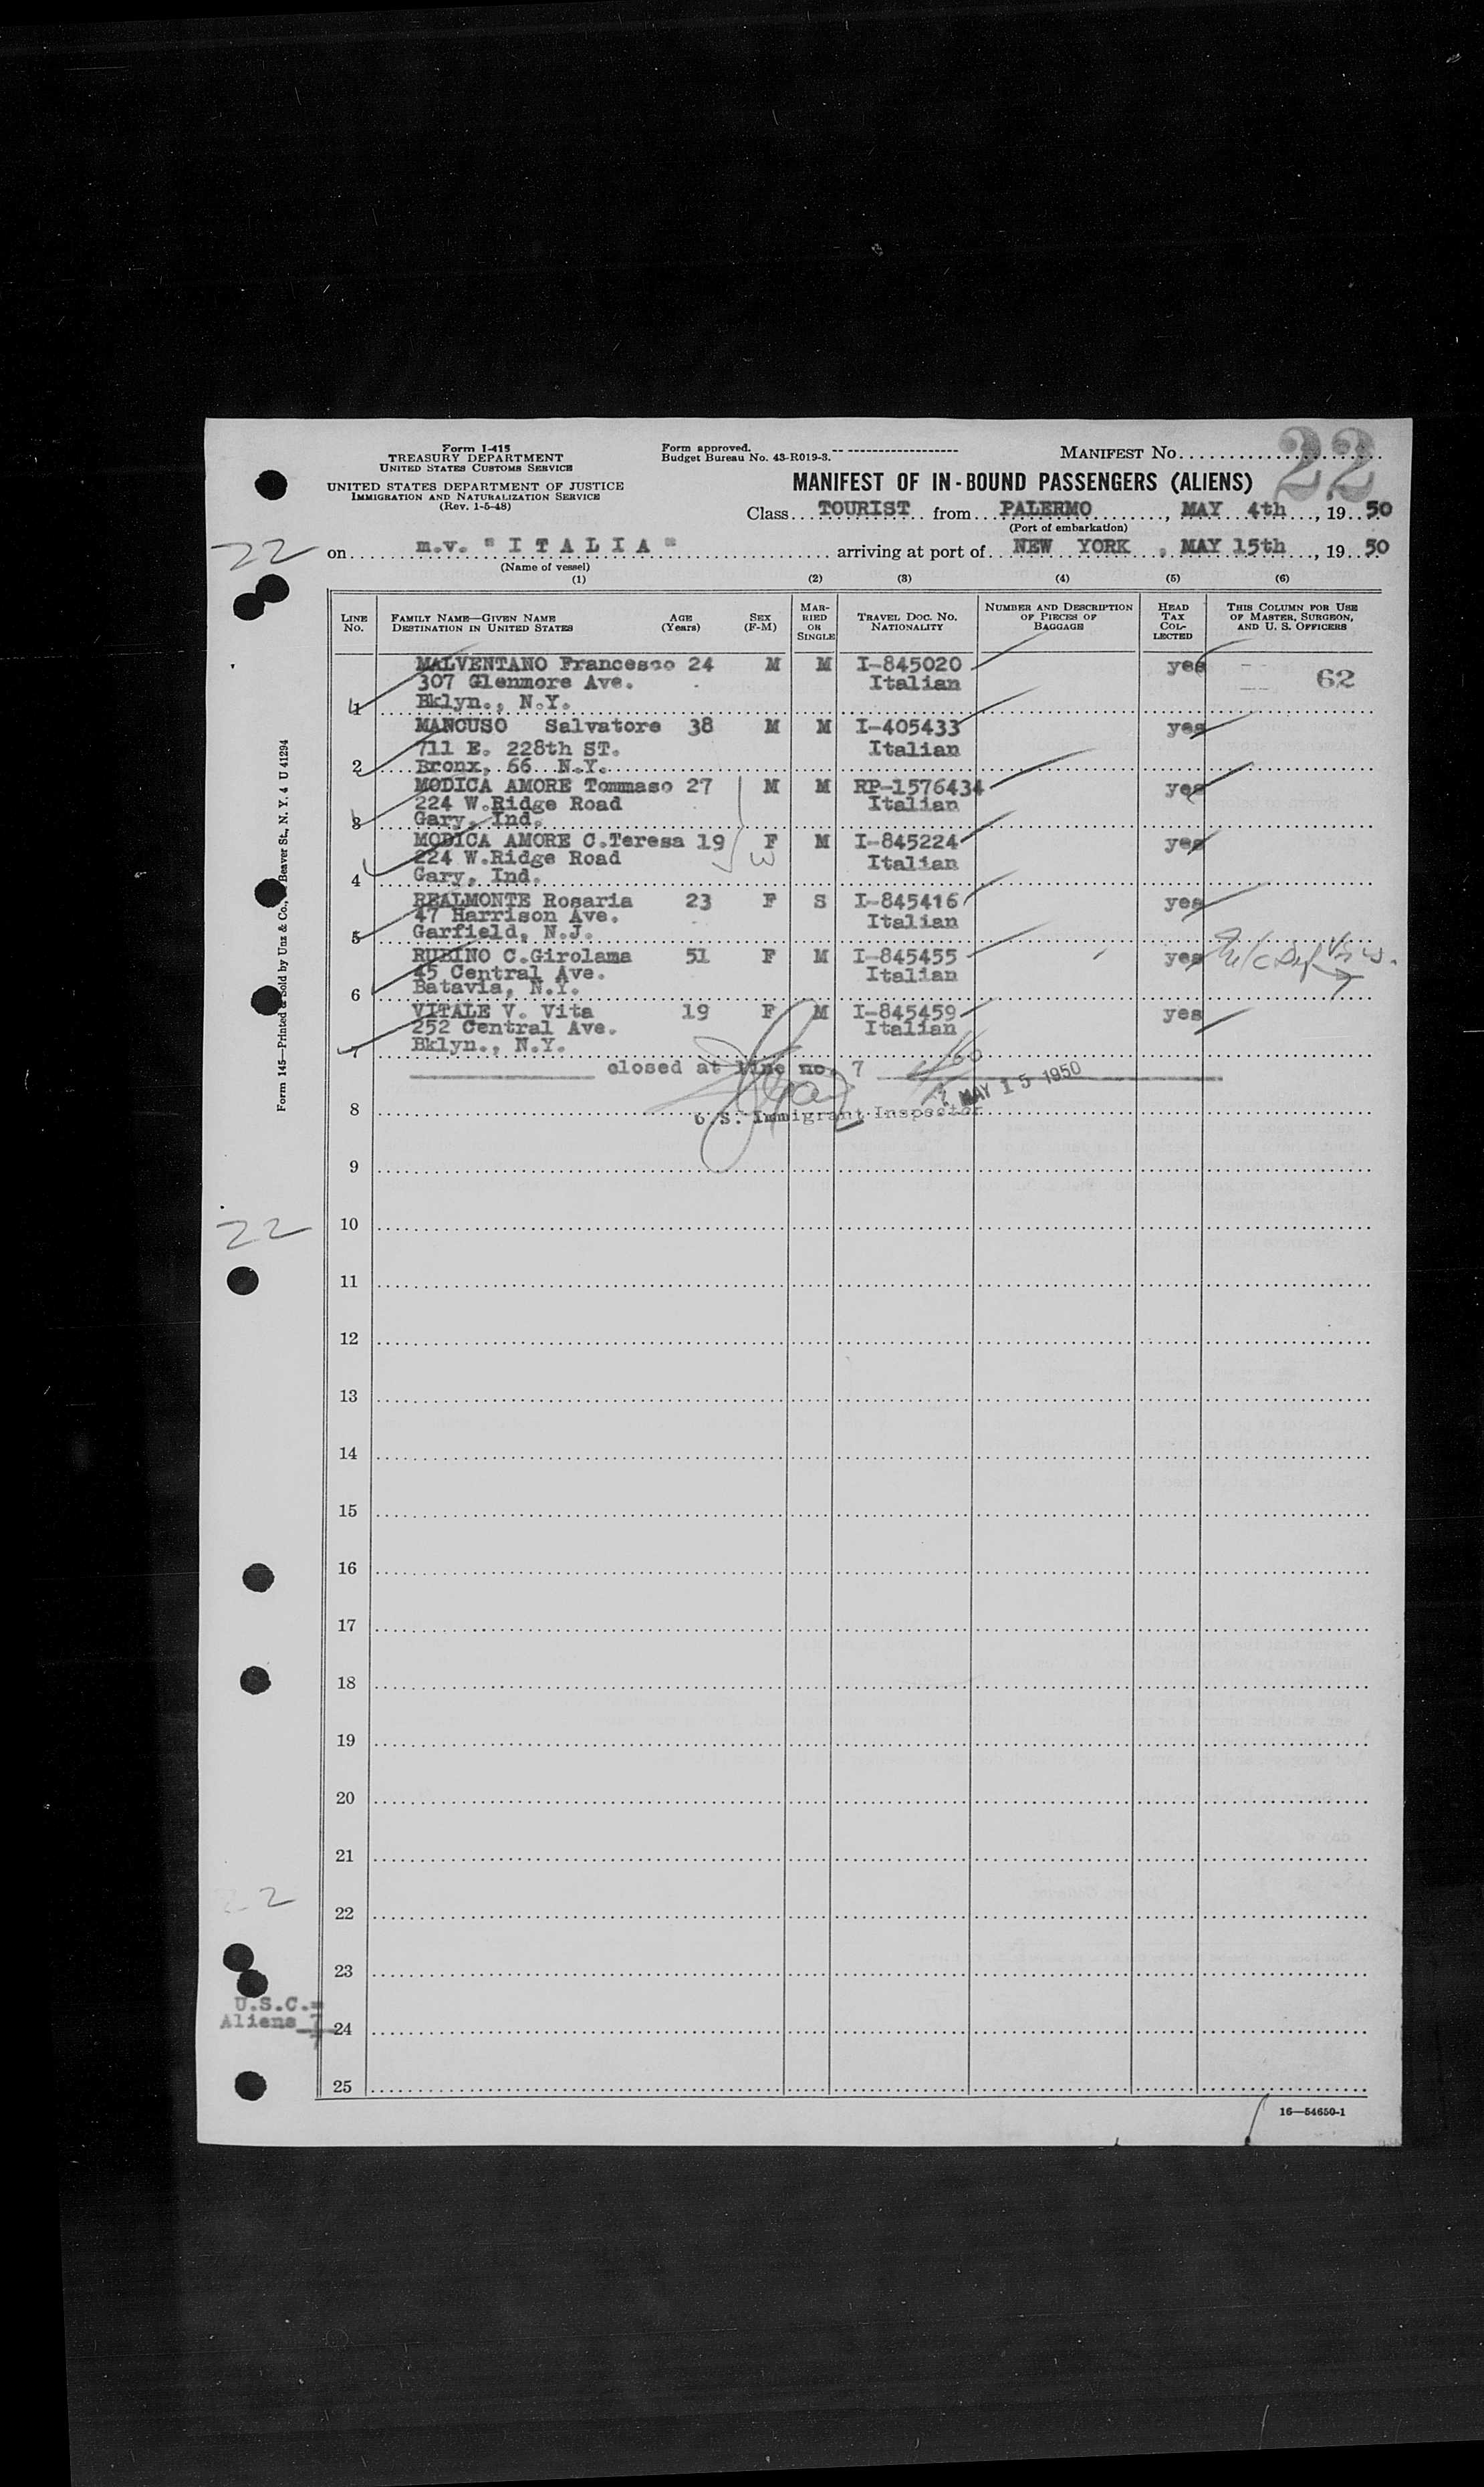 Form I-415
TREASURY DEPARTMENT
UNITED STATES CUSTOMS SERVICE
UNITED STATES DEPARTMENT OF JUSTICE
IMMIGRATION AND NATURALIZATION SERVICE
(Rev. 1-5-48)
Form approved.
Budget Bureau No. 43-R019-3.
MANIFEST NO. 22
MANIFEST OF IN-BOUND PASSENGERS (ALIENS)
Class TOURIST from PALERMO, MAY 4th, 1950
(Port of embarkation)
22
on m.v. "ITALIA" arriving at port of NEW YORK, MAY 15th, 1950
(Name of vessel)
(1) (2) (3) (4) (5) (6)
LINE NO. FAMILY NAME—GIVEN NAME DESTINATION IN UNITED STATES AGE (Years) SEX (F-M) MARRIED OR SINGLE TRAVEL DOC. NO. NATIONALITY NUMBER AND DESCRIPTION OF PIECES OF BAGGAGE HEAD TAX COLLECTED THIS COLUMN FOR USE OF MASTER, SURGEON, AND U. S. OFFICERS
MALVENTANO Francesco 24 M M I-845020 yes
307 Glenmore Ave. Italian 62
1 Bklyn., N.Y.
MANCUSO Salvatore 38 M M I-405433 yes
711 E. 228th ST. Italian
2 Bronx, 66 N.Y.
MODICA AMORE Tommaso 27 M M RP-1576434 yes
224 W.Ridge Road Italian
3 Gary, Ind.
MODICA AMORE C.Teresa 19 F M I-845224 yes
224 W.Ridge Road W Italian
4 Gary, Ind.
REALMONTE Rosaria 23 F S I-845416 yes
47 Harrison Ave. Italian
5 Garfield, N.J.
RUBINO C.Girolama 51 F M I-845455 yes
45 Central Ave. Italian
6 Batavia, N.Y.
VITALE V. Vita 19 F M I-845459 yes
252 Central Ave. Italian
7 Bklyn., N.Y.
closed at line no. 7
MAY 15 1950
8 U.S. Immigrant Inspector
9
22
10
11
12
13
14
15
16
17
18
19
20
21
22
23
U.S.C.=
Aliens 7
24
25
16—54650-1
Form 145—Printed & Sold by Unz & Co., Beaver St., N. Y. 4 U 41294